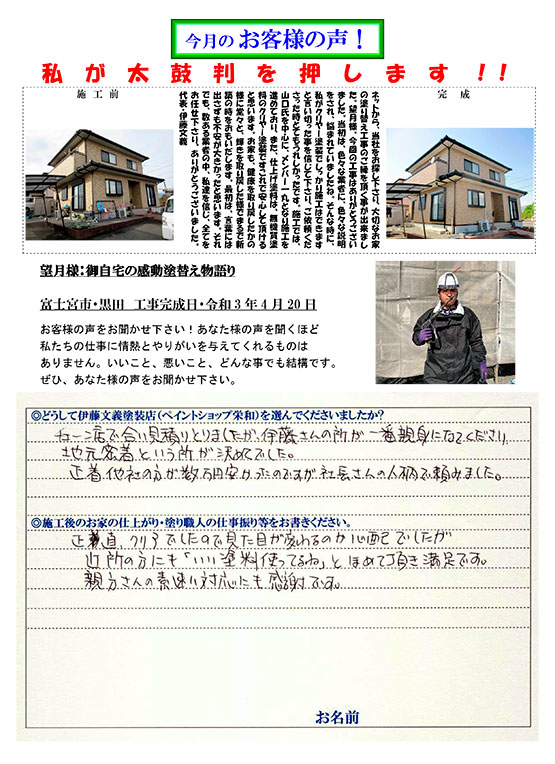 今月の お客様の声！
私が太鼓判を押します!!
施工前
完成
ネットから、当社をお探し下さり、大切なお家
の塗り替え工事のご縁を頂く事が出来まし
た。望月様、今回の工事はありがとうござい
ました。当初は、色々な業者に、色々な説明
をされ、悩まれていましたね。そんな時に、
私がクリヤー塗装でしっかり施工はできます
と言い切った事を信じて下さり、ご依頼くだ
さった時とてもうれしかったです。施工では、
山口氏を中心に、メンバー一丸となり施工を
進めており、また、仕上げ塗料は、無機質塗
料のクリヤー塗装ですこれで安心して頂ける
と思います。お家も、健康を取り戻したかの
様に堂々と、輝きを取り戻した様でまるで新
築の時をおもいだします。最初は、言葉には
出さずも不安が大きかったと思います。それ
でも、数ある業者の中、私達を信じ、全てを
お任せ下さり、ありがとうございました。
代表・伊藤文義
望月様：御自宅の感動塗替え物語り
富士宮市・黒田 工事完成日・令和３年４月２０日
お客様の声をお聞かせ下さい！あなた様の声を聞くほど
私たちの仕事に情熱とやりがいを与えてくれるものは
ありません。いいこと、悪いこと、どんな事でも結構です。
ぜひ、あなた様の声をお聞かせ下さい。
◎どうして伊藤文義塗装店（ペイントショップ栄和）を選んでくださいましたか？
チェーン店で合い見積りとりましたが、伊藤さんの所が一番親身になってくださり
地元密着という所が決めてでした。
正直他社の方が数万円安かったのですが社長さんの人柄で頼みました。
◎施工後のお家の仕上がり・塗り職人の仕事振り等をお書きください。
正直、クリアでしたので見た目が変わるのか心配でしたが
近所の方にも「いい塗料使ってるね」とほめて頂き満足です。
親方さんの素速い対応にも感謝です。
お名前